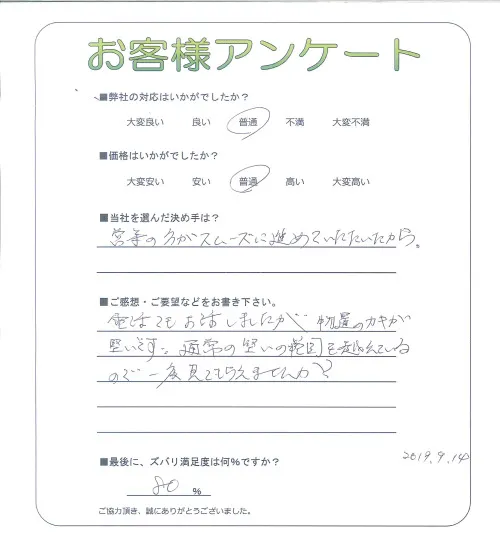 お客様アンケート
■弊社の対応はいかがでしたか?
大変良い 良い 普通 不満 大変不満
■価格はいかがでしたか?
大変安い 安い 普通 高い 大変高い
■当社を選んだ決め手は?
営業の方がスムーズに進めていただいたから。
■ご感想・ご要望などをお書き下さい。
電話でもお話しましたが 物置のカギが
堅いです。通常の堅いの範囲を越えている
ので一度見てもらえませんか?
■最後に、ズバリ満足度は何%ですか?
2019.9.14
80 %
ご協力頂き、誠にありがとうございました。